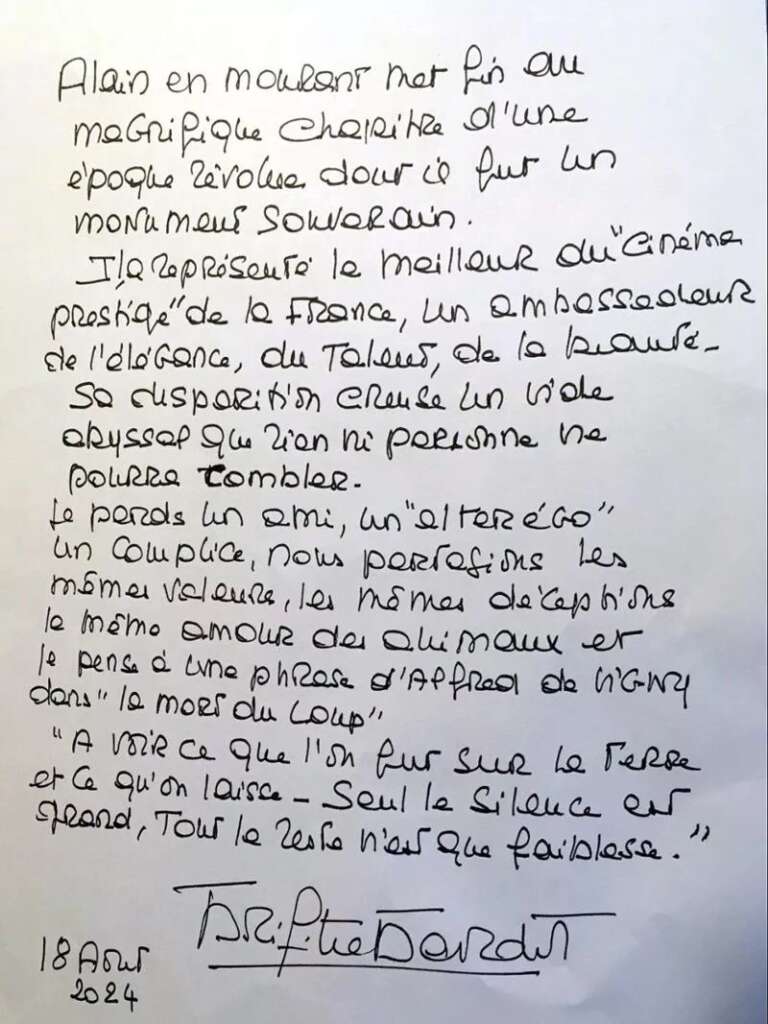 Alain en mourant met fin au
magnifique chapitre d'une
époque révolue dont il fut un
monument souverain.
Il a représenté le meilleur du "cinéma
prestige" de la France, un ambassadeur
de l'élégance, du talent, de la beauté -
Sa disparition creuse un vide
abyssal que rien ni personne ne
pourra combler.
Je perds un ami, un "alter égo"
un complice, nous partagions les
mêmes valeurs, les mêmes déceptions
le même amour des animaux et
je pense à une phrase d'Alfred de VIGNY
dans "la mort du Loup"
"A voir ce que l'on fut sur la Terre
et ce qu'on laisse - Seul le silence est
grand, Tout le reste n'est que faiblesse."
Brigitte Bardot
18 Aout
2024